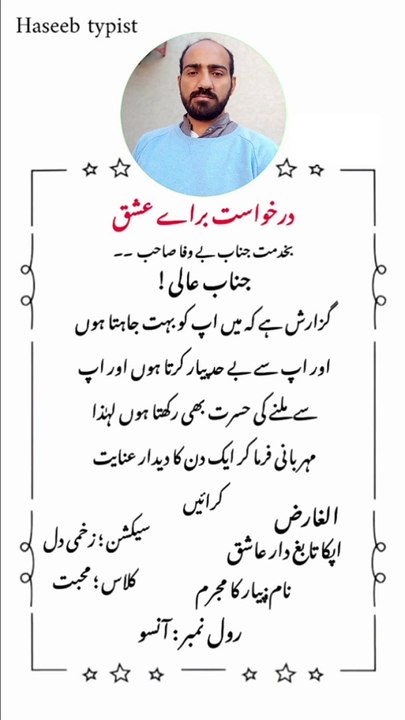 Haseeb typist
درخواست براے عشق
بخدمت جناب بے وفا صاحب ۔۔
جناب عالی !
گزارش ہے کہ میں اپ کو بہت جاہتا ہوں
اور اپ سے بے حد پیار کرتا ہوں اور اپ
سے ملنے کی حسرت بھی رکھتا ہوں لہٰذا
مہربانی فرما کر ایک دن کا دیدار عنایت
کرائیں
الغارض
اپکا تابغ دار عاشق
سیکشن ؛ زخمی دل
نام ؛ پیار کا مجرم
کلاس ؛ محبت
رول نمبر : آنسو